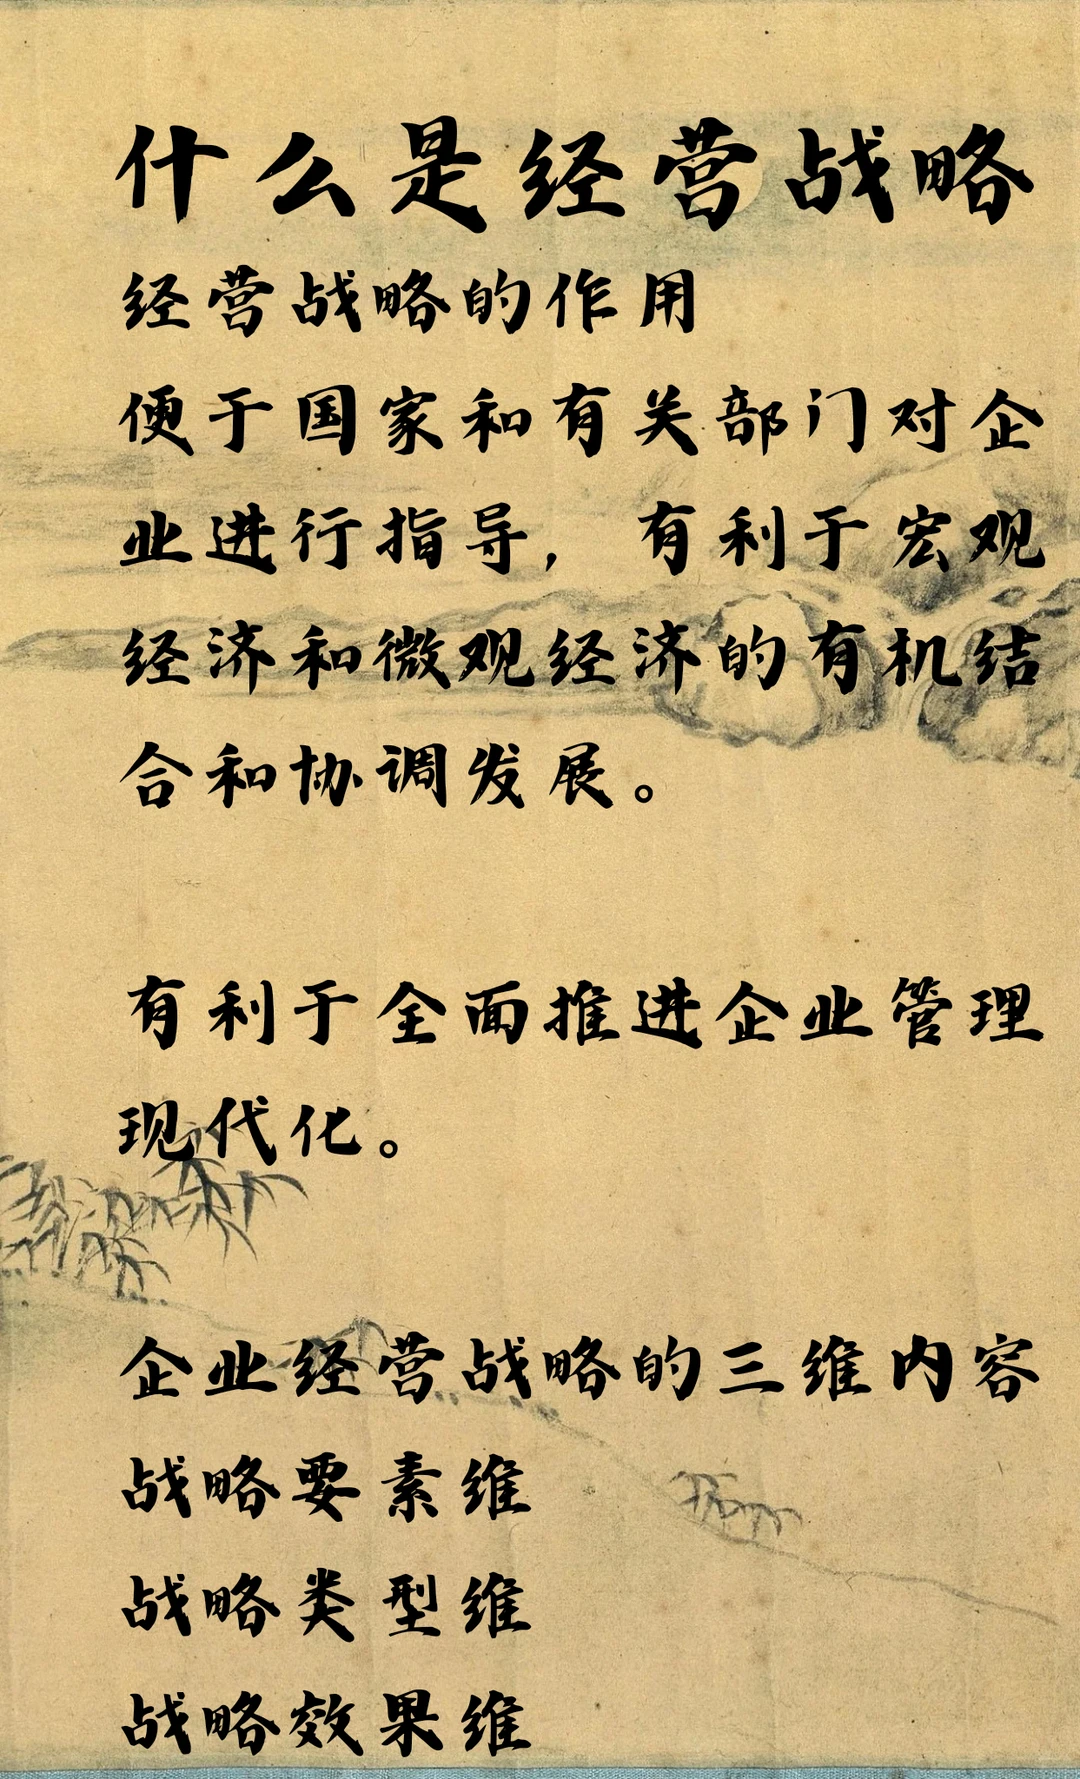 什么是经营战略
经营战略的作用
便于国家和有关部门对企
业进行指导，有利于宏观
经济和微观经济的有机结
合和协调发展。
有利于全面推进企业管理
现代化。
企业经营战略的三维内容
战略要素维
战略类型维
战略效果维